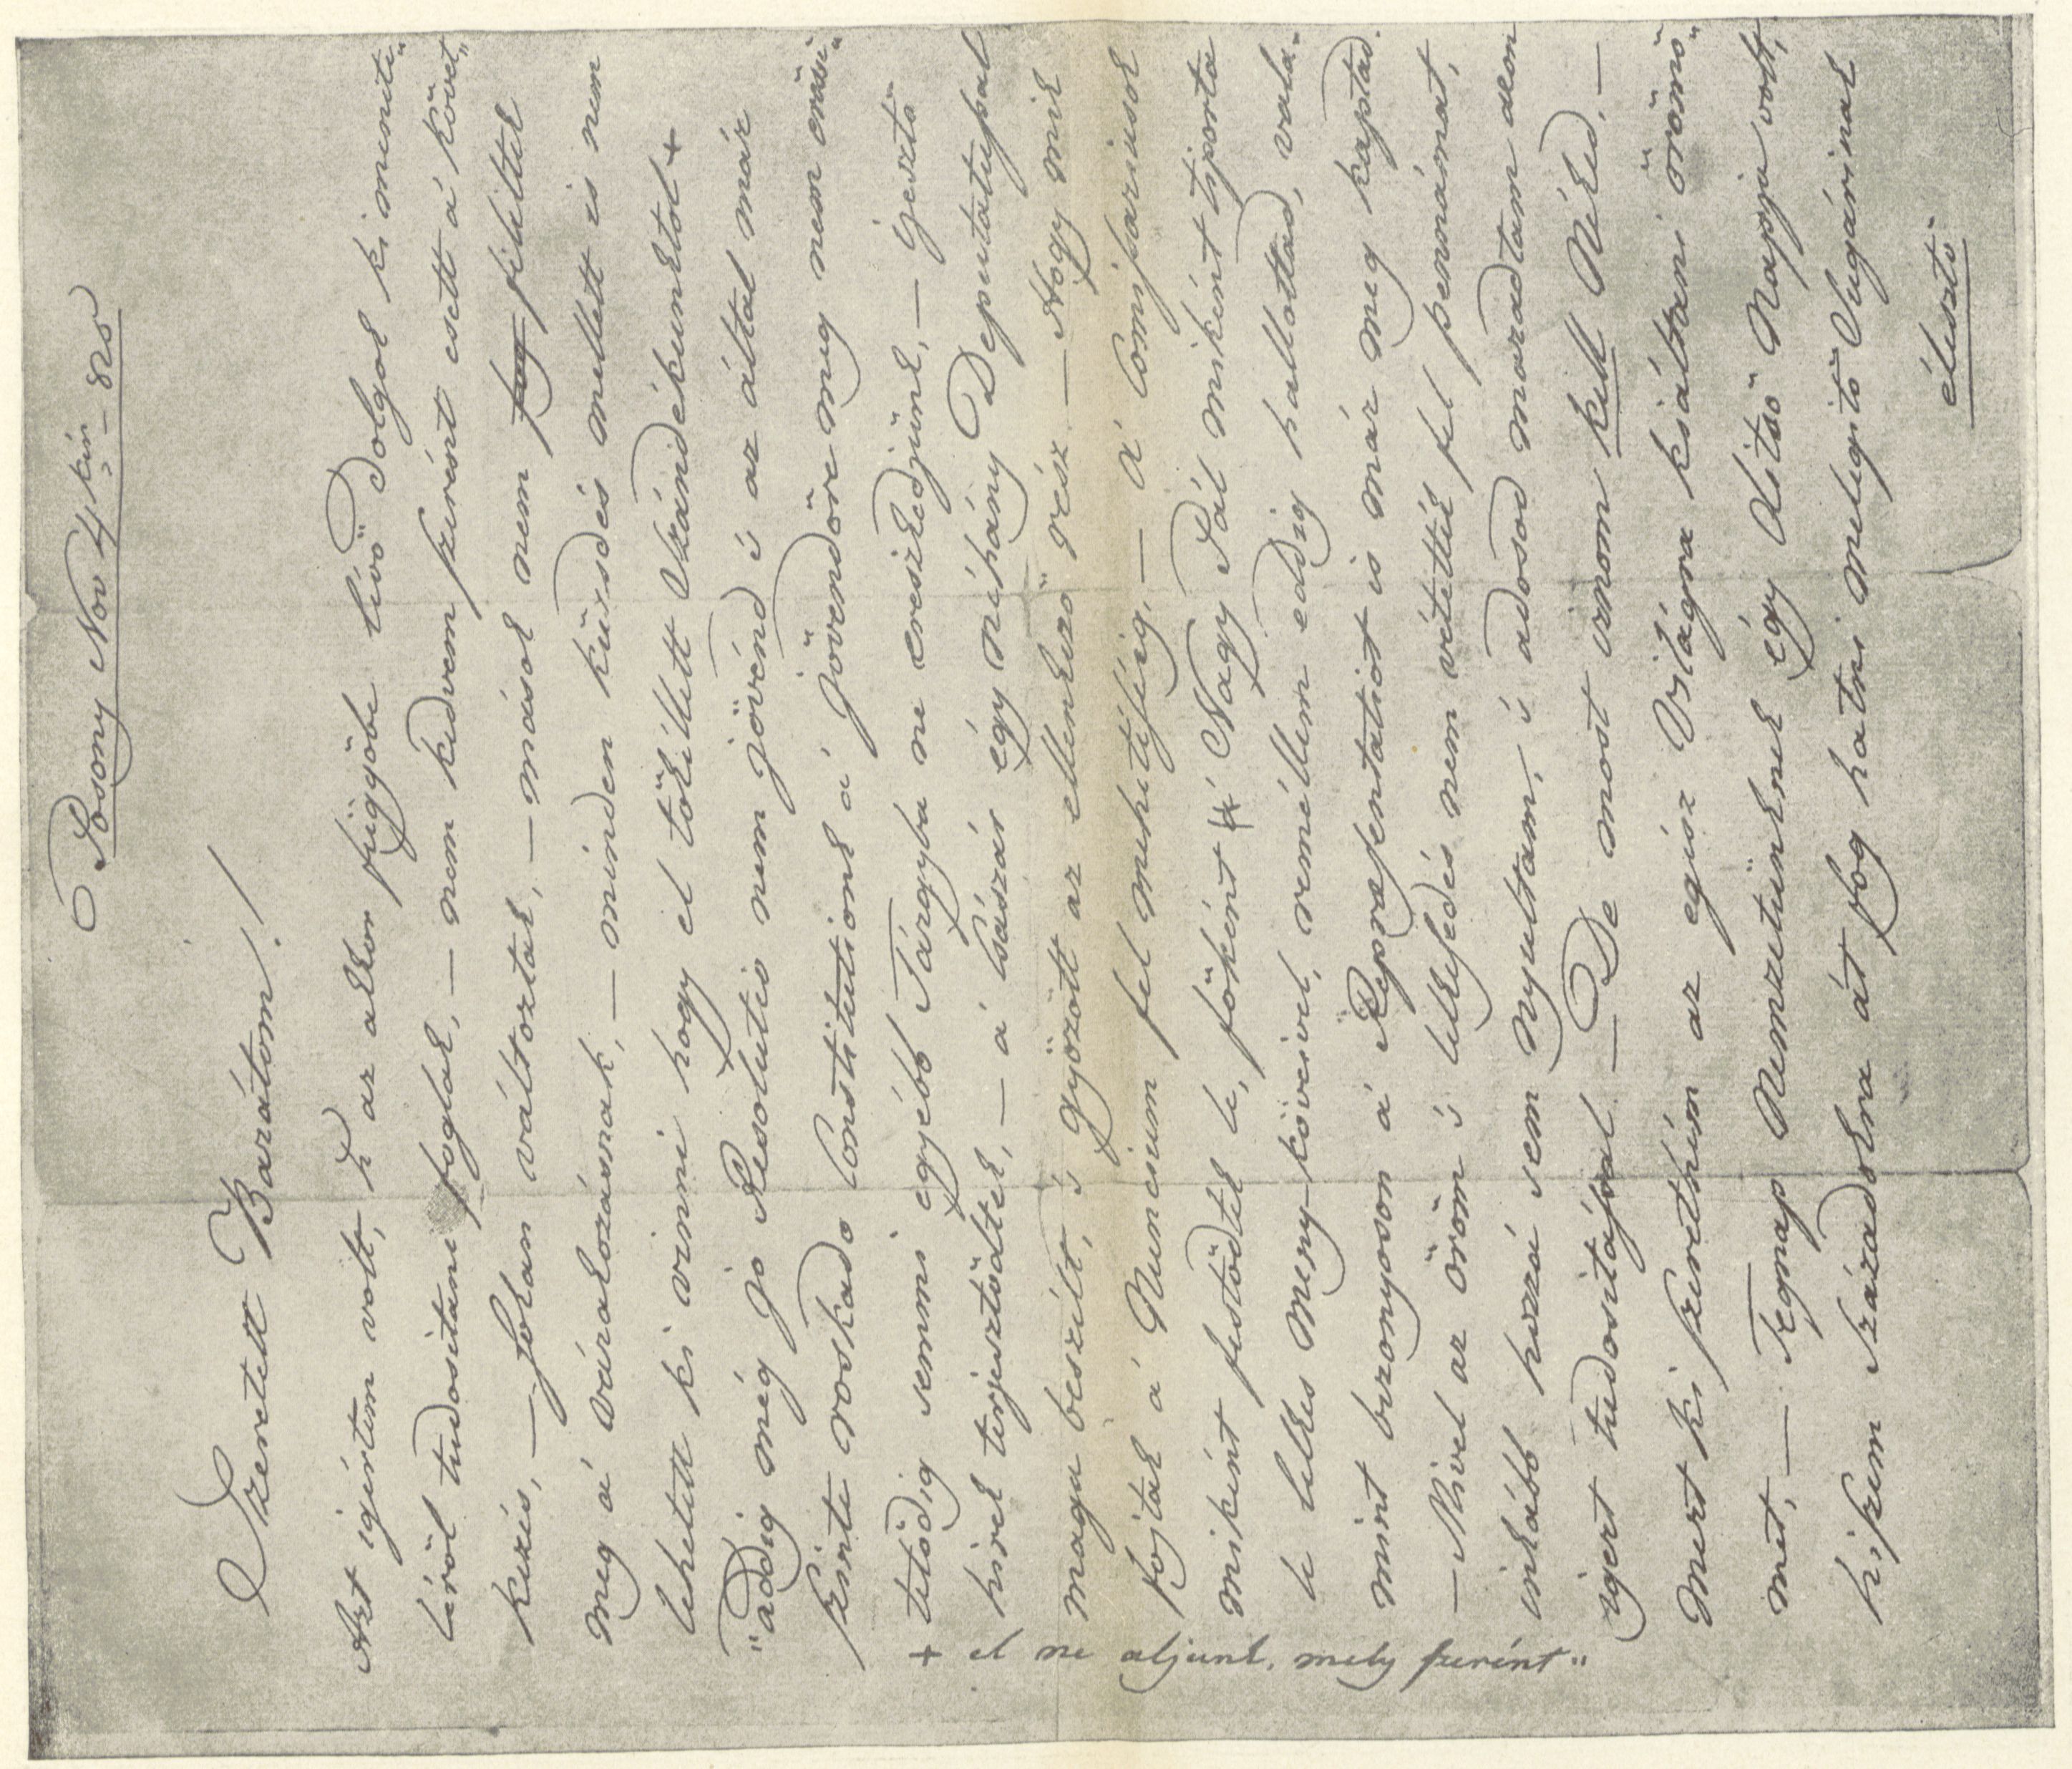 Posony Nov 4kén 825
Szeretett Barátom!
Azt igértem volt, h az akkor függöbe lévö Dolgok ki menete„
léröl tudositani foglak, — nem kedvem szerént esett á követ„
kezés, — sokan változtak, — mások nem fog hiúltek
meg á várakozásnak, — minden küszdés mellett is nem
lehetett ki vinni hogy el tökéllett Szándékunktol +
„addig még jo Resolutio nem jövénd 's az által már
szinte roskado Constitutionk á jövendöre meg nem erössi„
tetödig semmi egyébb Tárgyba ne ereszkedjünk, — ijesztö
hirek terjesztödtek, — á Császár égy néhány Deputatussal
maga beszélt, 's gyözött az ellenkezö rész — Hogy mik
fojtak á Nuncium fel menetéssig, — á Comissariusok
miként festödtek le, föként á Nagy Pál miként tiporta
le lelkes Meny-köveivel, reméllem eddig hallottad, vala„
mint bizonyoson á Repraesentatiot is már meg kaptad.
— Mivel az öröm 's lelkesedés nem vétették fel pennámat,
inkább hozzá sem nyultam, 's adosod maradtam azon
igert tudositással — De most irnom kell Néked, —
Mert ki szeretném az egész Világra kiáltani örömö„
met, — Tegnap Nemzetünknek égy Ditsö Napja volt,
hiszem Századokra át fog hatni melegitö Sugárinak
élesztö
+ el ne aljunk, mely szerént„